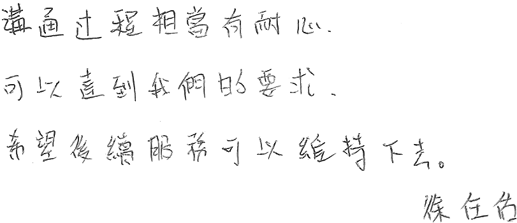 溝通过程相當有耐心.
可以達到我們的要求.
希望後續服務可以維持下去。
徐任佑